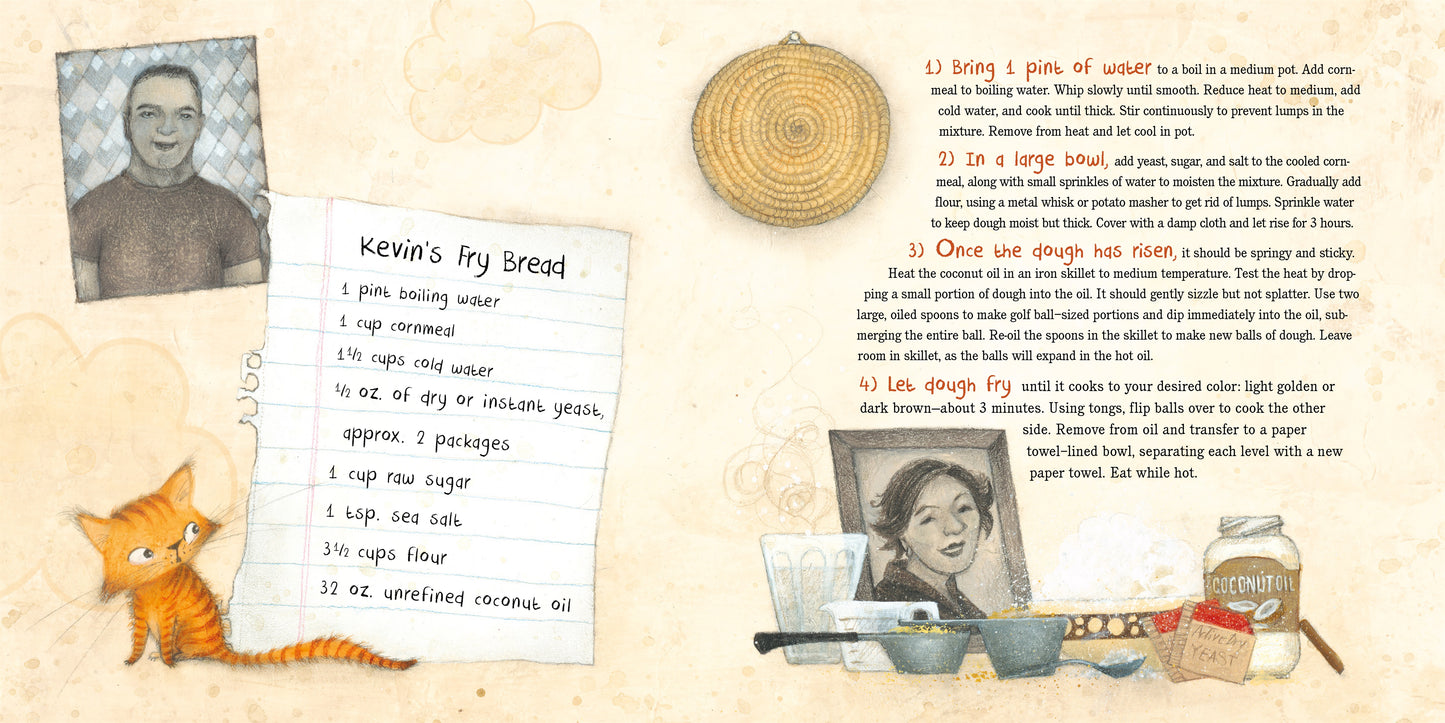 Kevin's Fry Bread
1 pint boiling water
1 cup cornmeal
1 1/2 cups cold water
1/2 oz. of dry or instant yeast,
approx. 2 packages
1 cup raw sugar
1 tsp. sea salt
3 1/2 cups flour
32 oz. unrefined coconut oil
1) Bring 1 pint of water to a boil in a medium pot. Add corn-
meal to boiling water. Whip slowly until smooth. Reduce heat to medium, add
cold water, and cook until thick. Stir continuously to prevent lumps in the
mixture. Remove from heat and let cool in pot.
2) In a large bowl, add yeast, sugar, and salt to the cooled corn-
meal, along with small sprinkles of water to moisten the mixture. Gradually add
flour, using a metal whisk or potato masher to get rid of lumps. Sprinkle water
to keep dough moist but thick. Cover with a damp cloth and let rise for 3 hours.
3) Once the dough has risen, it should be springy and sticky.
Heat the coconut oil in an iron skillet to medium temperature. Test the heat by drop-
ping a small portion of dough into the oil. It should gently sizzle but not splatter. Use two
large, oiled spoons to make golf ball–sized portions and dip immediately into the oil, sub-
merging the entire ball. Re-oil the spoons in the skillet to make new balls of dough. Leave
room in skillet, as the balls will expand in the hot oil.
4) Let dough fry until it cooks to your desired color: light golden or
dark brown—about 3 minutes. Using tongs, flip balls over to cook the other
side. Remove from oil and transfer to a paper
towel–lined bowl, separating each level with a new
paper towel. Eat while hot.
COCONUT OIL
YEAST